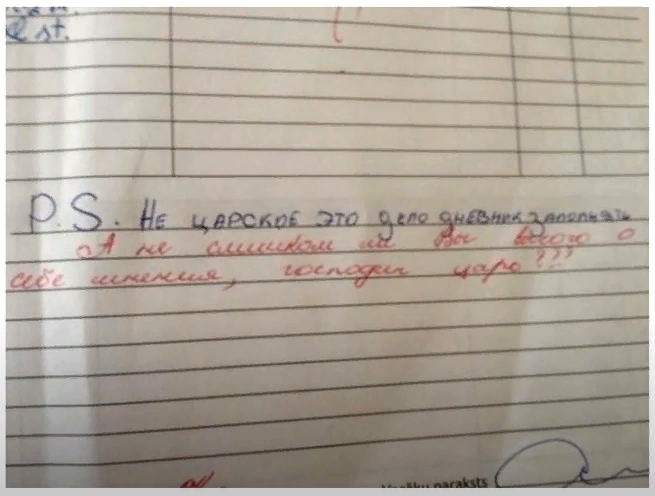 st.
P.S. НЕ ЦАРСКОЕ ЭТО ДЕЛО ДНЕВНИК ЗАПОЛНЯТЬ
А не слишком ли Вы высого о
себе мнения, господин царь???
paraksts